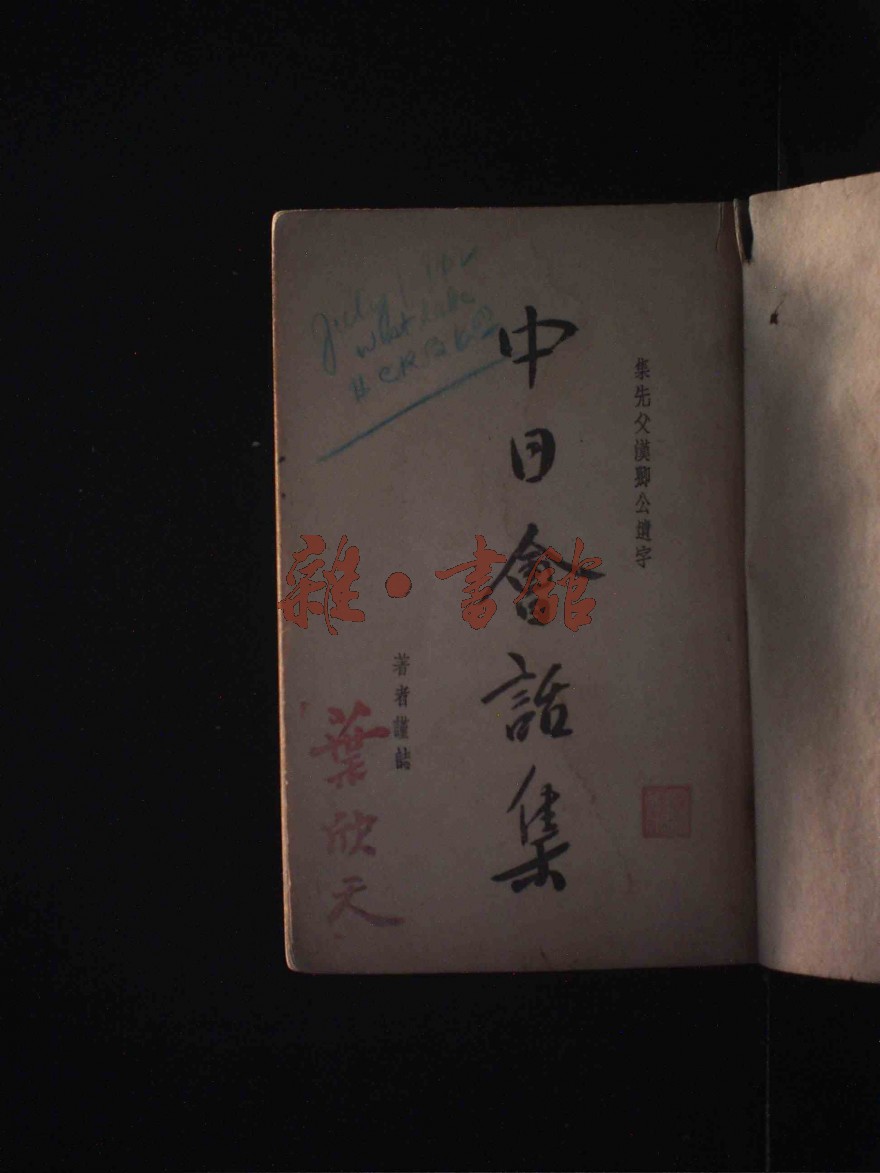 集先父漢卿公遺字
中日會話集
著者謹誌
葉欣天
雜·書館